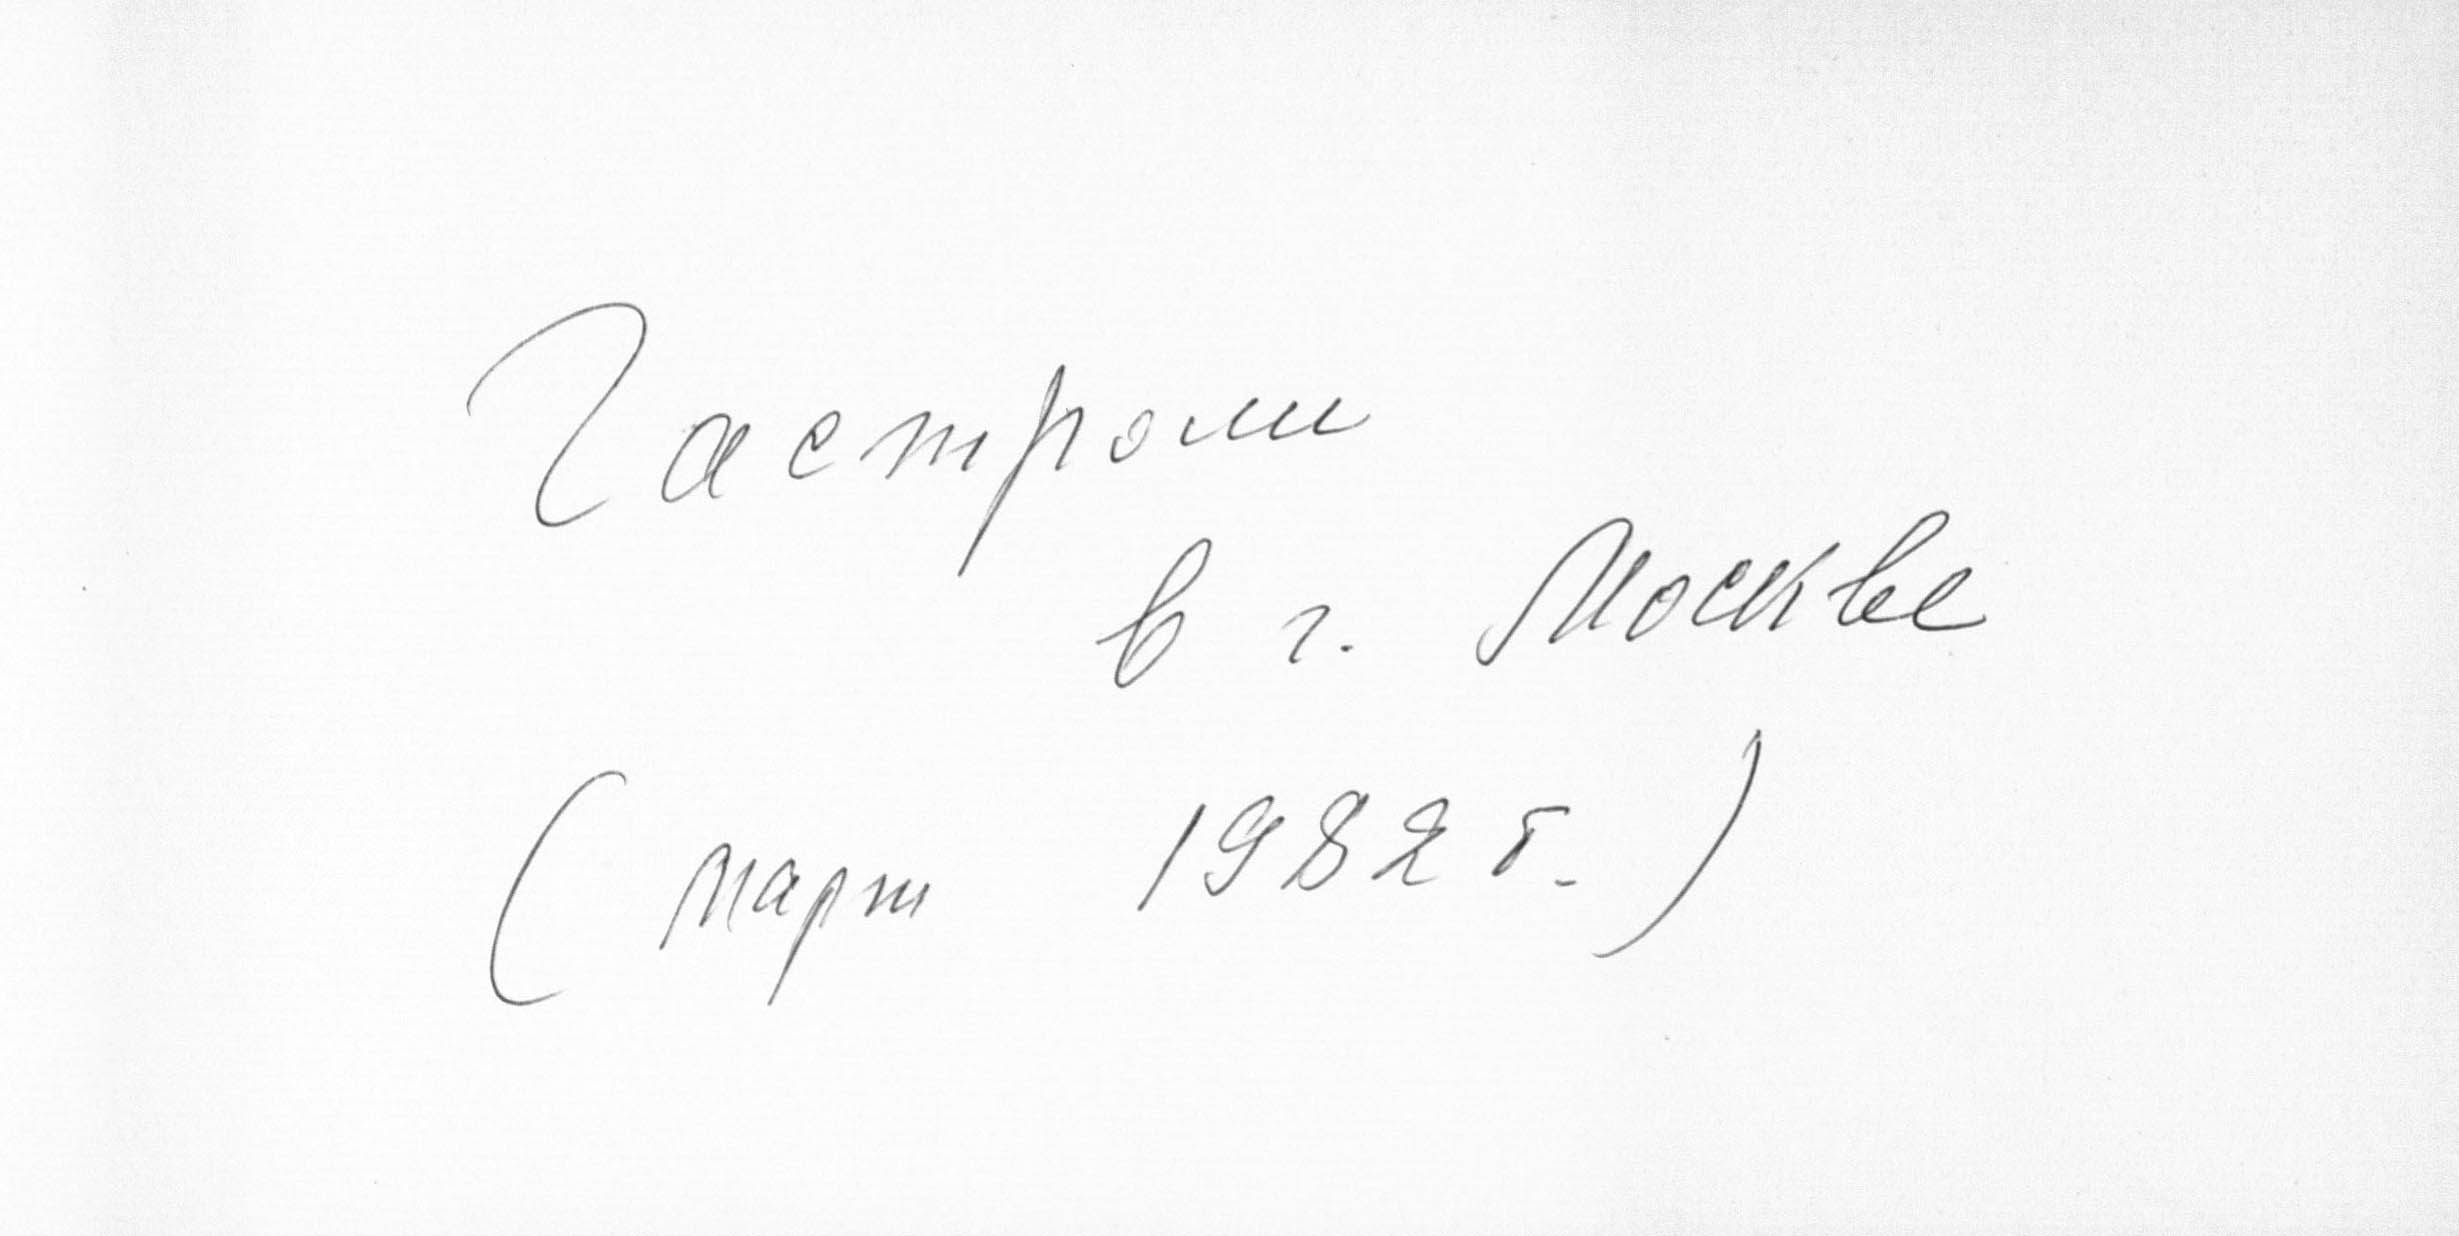 Гастроли
в г. Москве
(март 1982 г.)